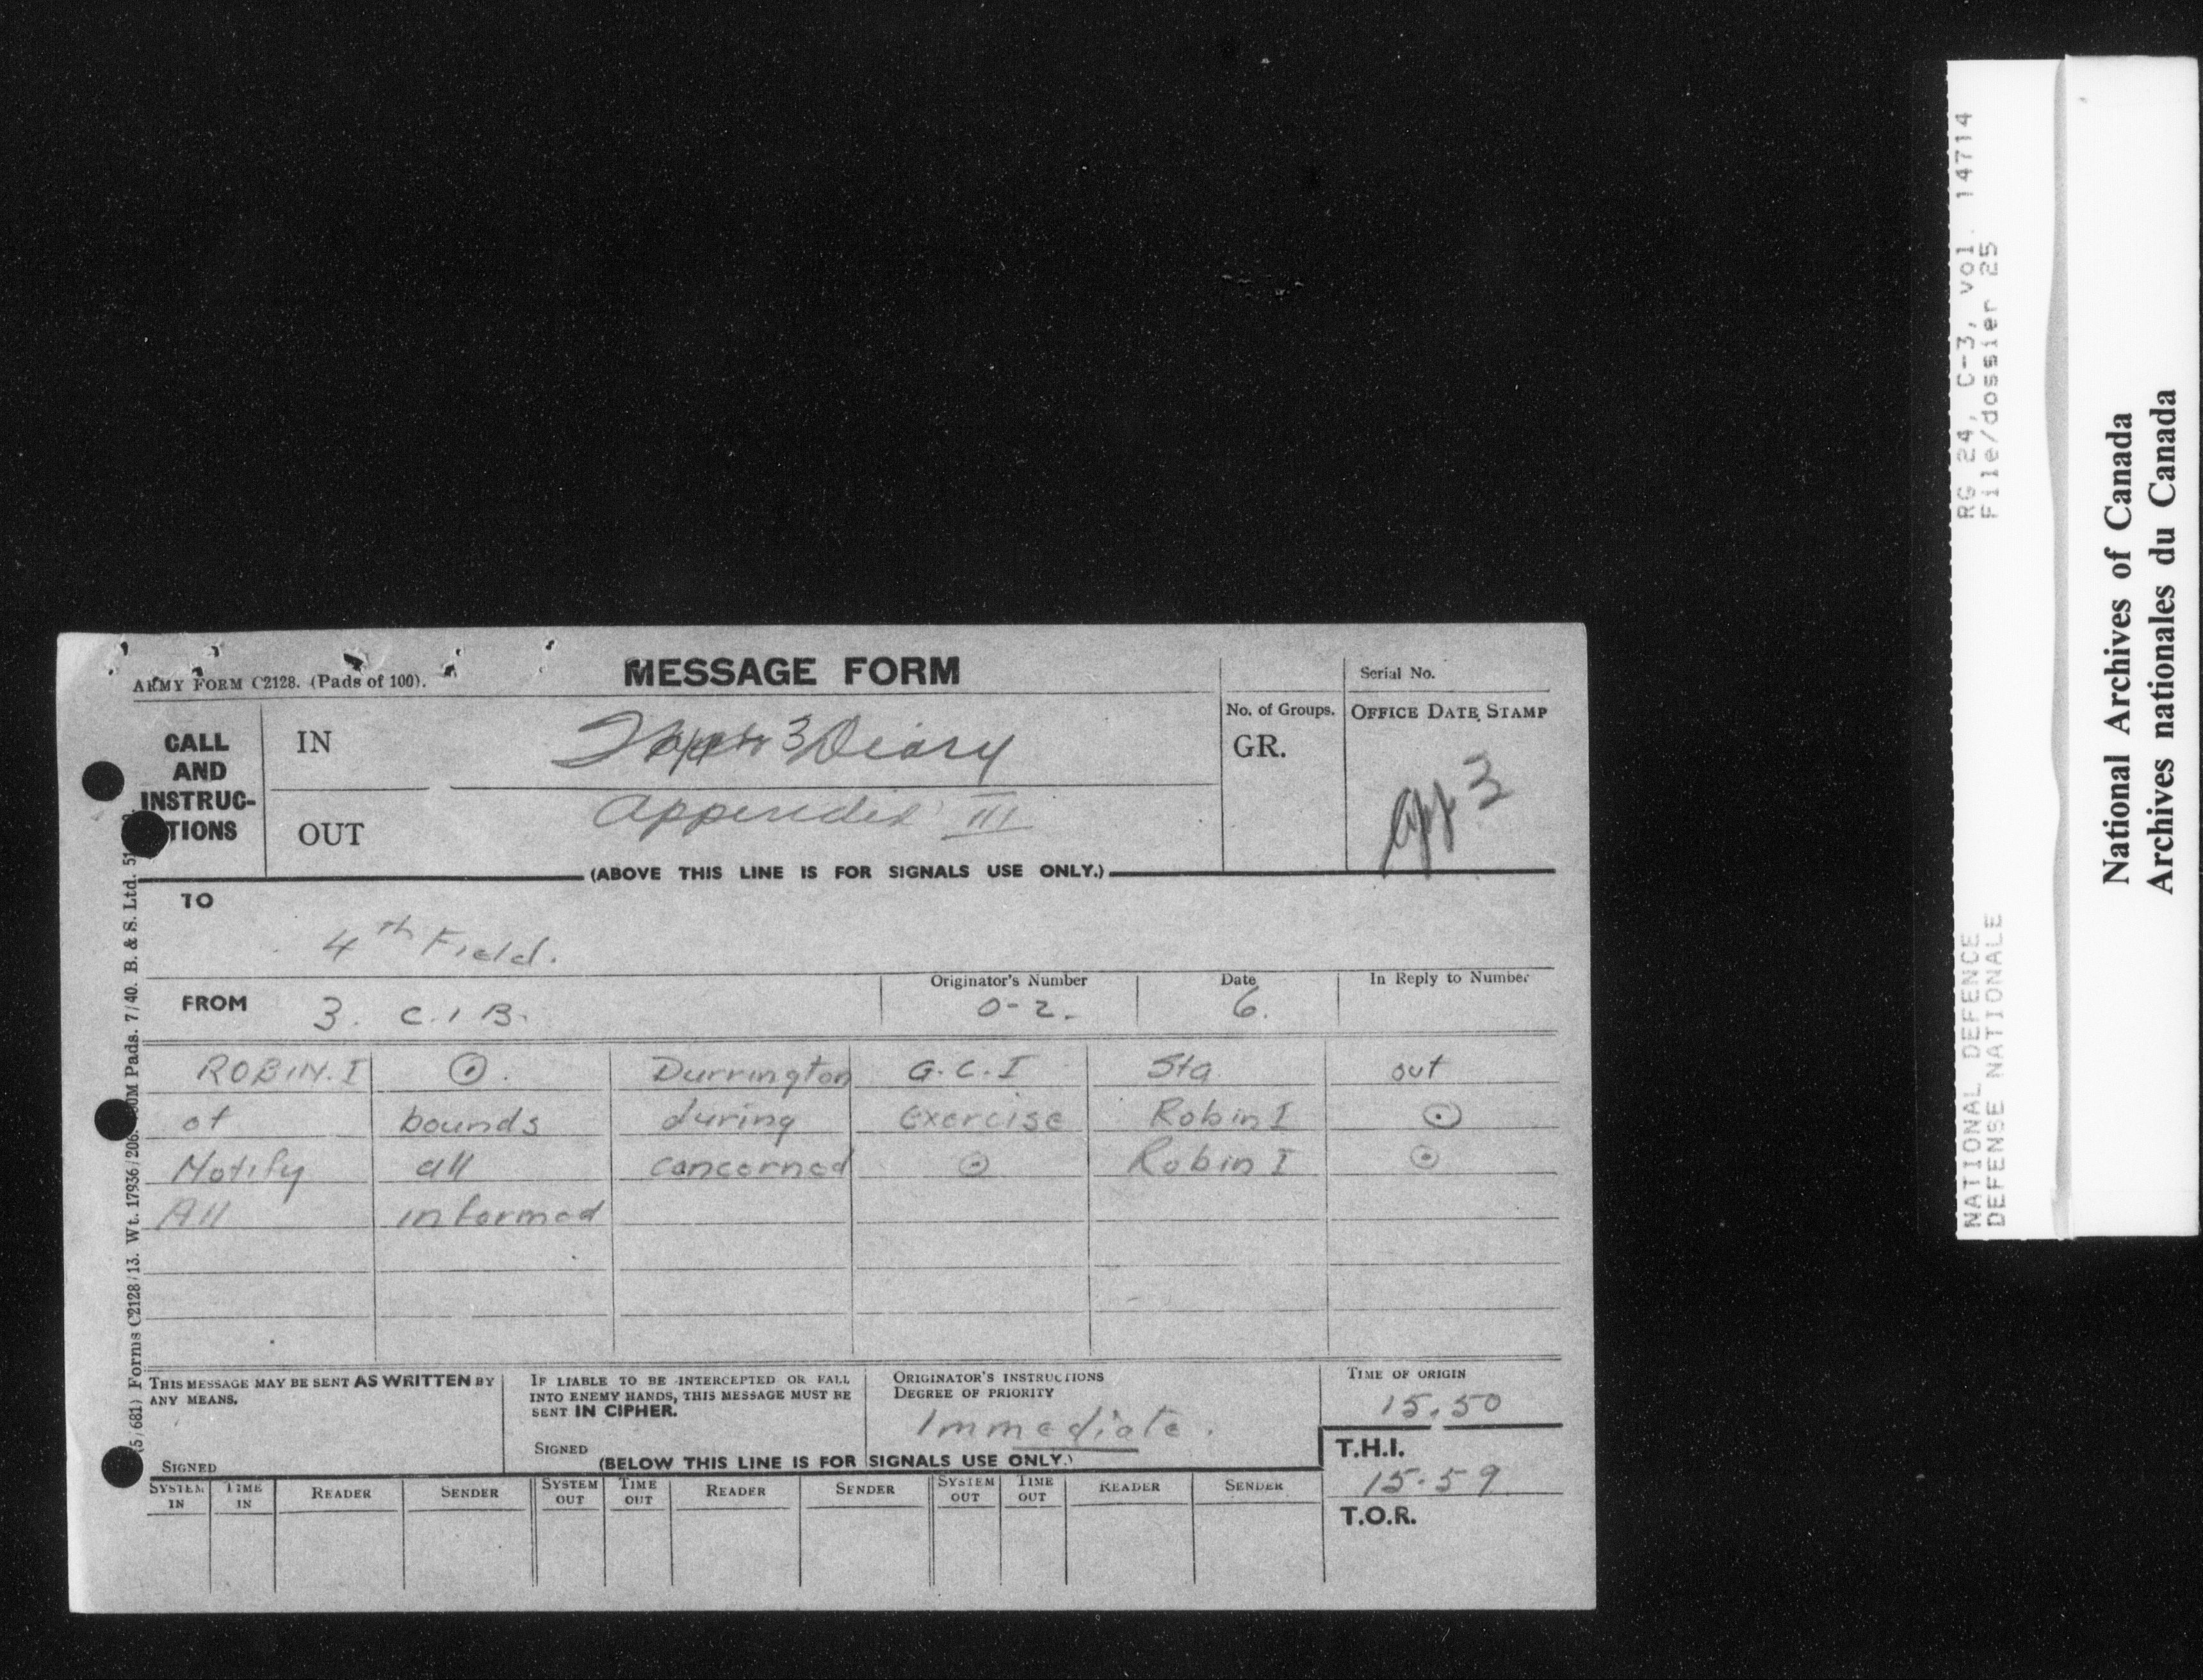 MESSAGE FORM
ARMY FORM C2128. (Pads of 100).
Serial No.
CALL AND INSTRUC-TIONS
IN
3 Diary
No. of Groups.
GR.
OFFICE DATE STAMP
OUT
Appendix III
App 3
(ABOVE THIS LINE IS FOR SIGNALS USE ONLY.)
TO
4th Field.
FROM
3. C. I B.
Originator's Number
O-2.
Date
6.
In Reply to Number
ROBIN. I ⊙. Durrington G.C.I Sta out
of bounds during exercise Robin I ⊙
Notify all concerned ⊙ Robin I ⊙
All informed
THIS MESSAGE MAY BE SENT AS WRITTEN BY
ANY MEANS.
SIGNED
IF LIABLE TO BE INTERCEPTED OR FALL
INTO ENEMY HANDS, THIS MESSAGE MUST BE
SENT IN CIPHER.
SIGNED
ORIGINATOR'S INSTRUCTIONS
DEGREE OF PRIORITY
Immediate.
TIME OF ORIGIN
15.50
T.H.I.
15.59
T.O.R.
(BELOW THIS LINE IS FOR SIGNALS USE ONLY.)
SYSTEM IN TIME IN READER SENDER SYSTEM OUT TIME OUT READER SENDER SYSTEM OUT TIME OUT READER SENDER
(5/681) Forms C2128/13. Wt. 17936/206. Pads. 7/40. B. & S. Ltd.
RG 24, C-3, vol. 14714
File/dossier 25
NATIONAL DEFENCE
DEFENSE NATIONALE
National Archives of Canada
Archives nationales du Canada